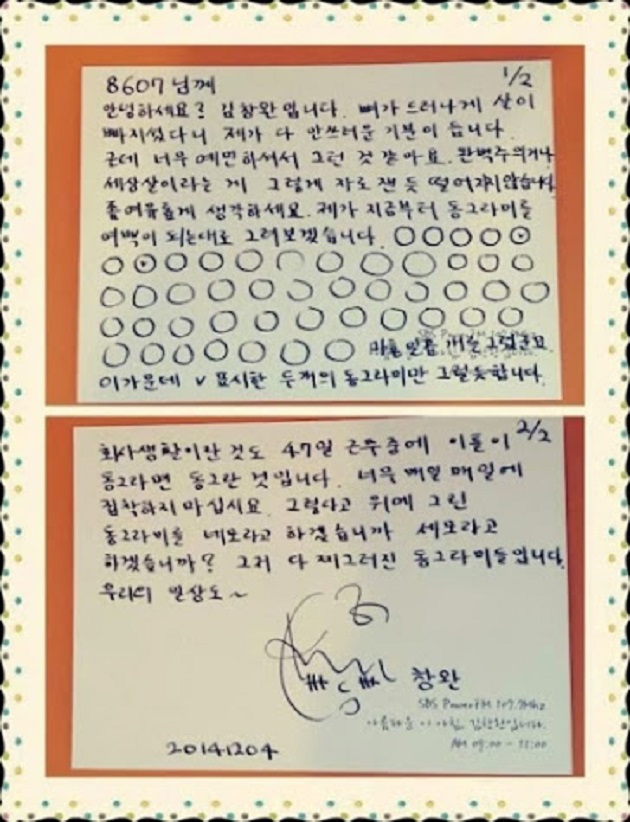 8607님께
1/2
안녕하세요? 김창완입니다. 뼈가 드러나게 살이
빠지셨다니 제가 다 안쓰러운 기분이 듭니다.
근데 너무 예민하셔서 그런 것 같아요. 완벽주의거나
세상살이라는 게 그렇게 자로 잰 듯 떨어지지 않습니다.
좀 여유롭게 생각하세요. 제가 지금부터 동그라미를
여백이 되는대로 그려보겠습니다.
마흔 일곱 개를 그렸군요.
이 가운데 v 표시한 두개의 동그라미만 그럴듯합니다.
2/2
회사생활이란 것도 47일 근무 중에 이틀이
동그라면 동그란 것입니다. 너무 매일 매일에
집착하지 마십시요. 그렇다고 위에 그린
동그라미를 네모라고 하겠습니까 세모라고
하겠습니까? 그저 다 찌그러진 동그라미들입니다.
우리의 일상도~
창완
SBS Power FM 107.7Mhz
아름다운 이 아침, 김창완입니다.
AM 09:00 - 11:00
20141204